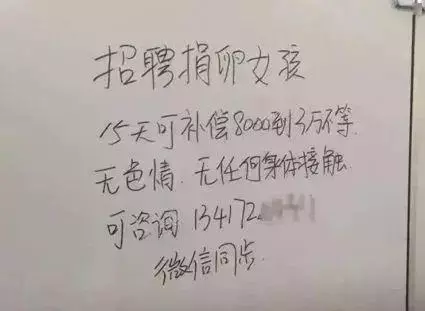 招聘捐卵女孩
15天可补偿8000到3万不等
无色情.无任何身体接触
可咨询 134172
微信同步.